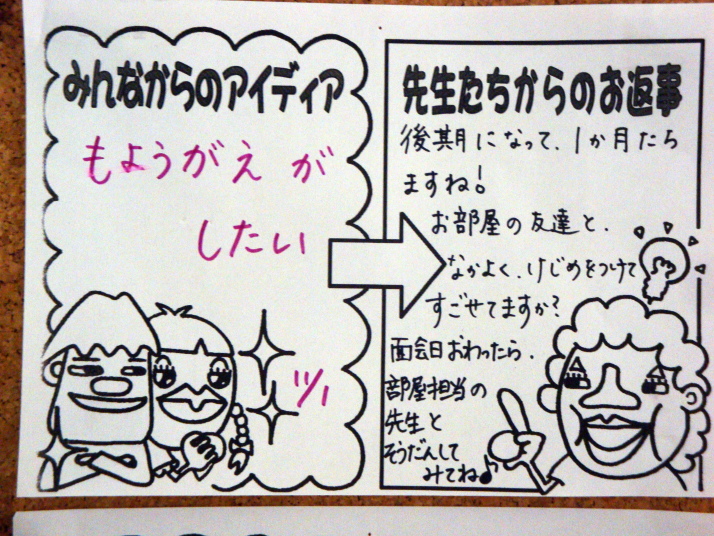 みんなからのアイディア
もようがえ が
したい
先生たちからのお返事
後期になって、1か月たら
ますね!
お部屋の友達と、
なかよく、けじめをつけて
すごせてますか?
面会日おわったら、
部屋担当の
先生と
そうだんして
みてね♪